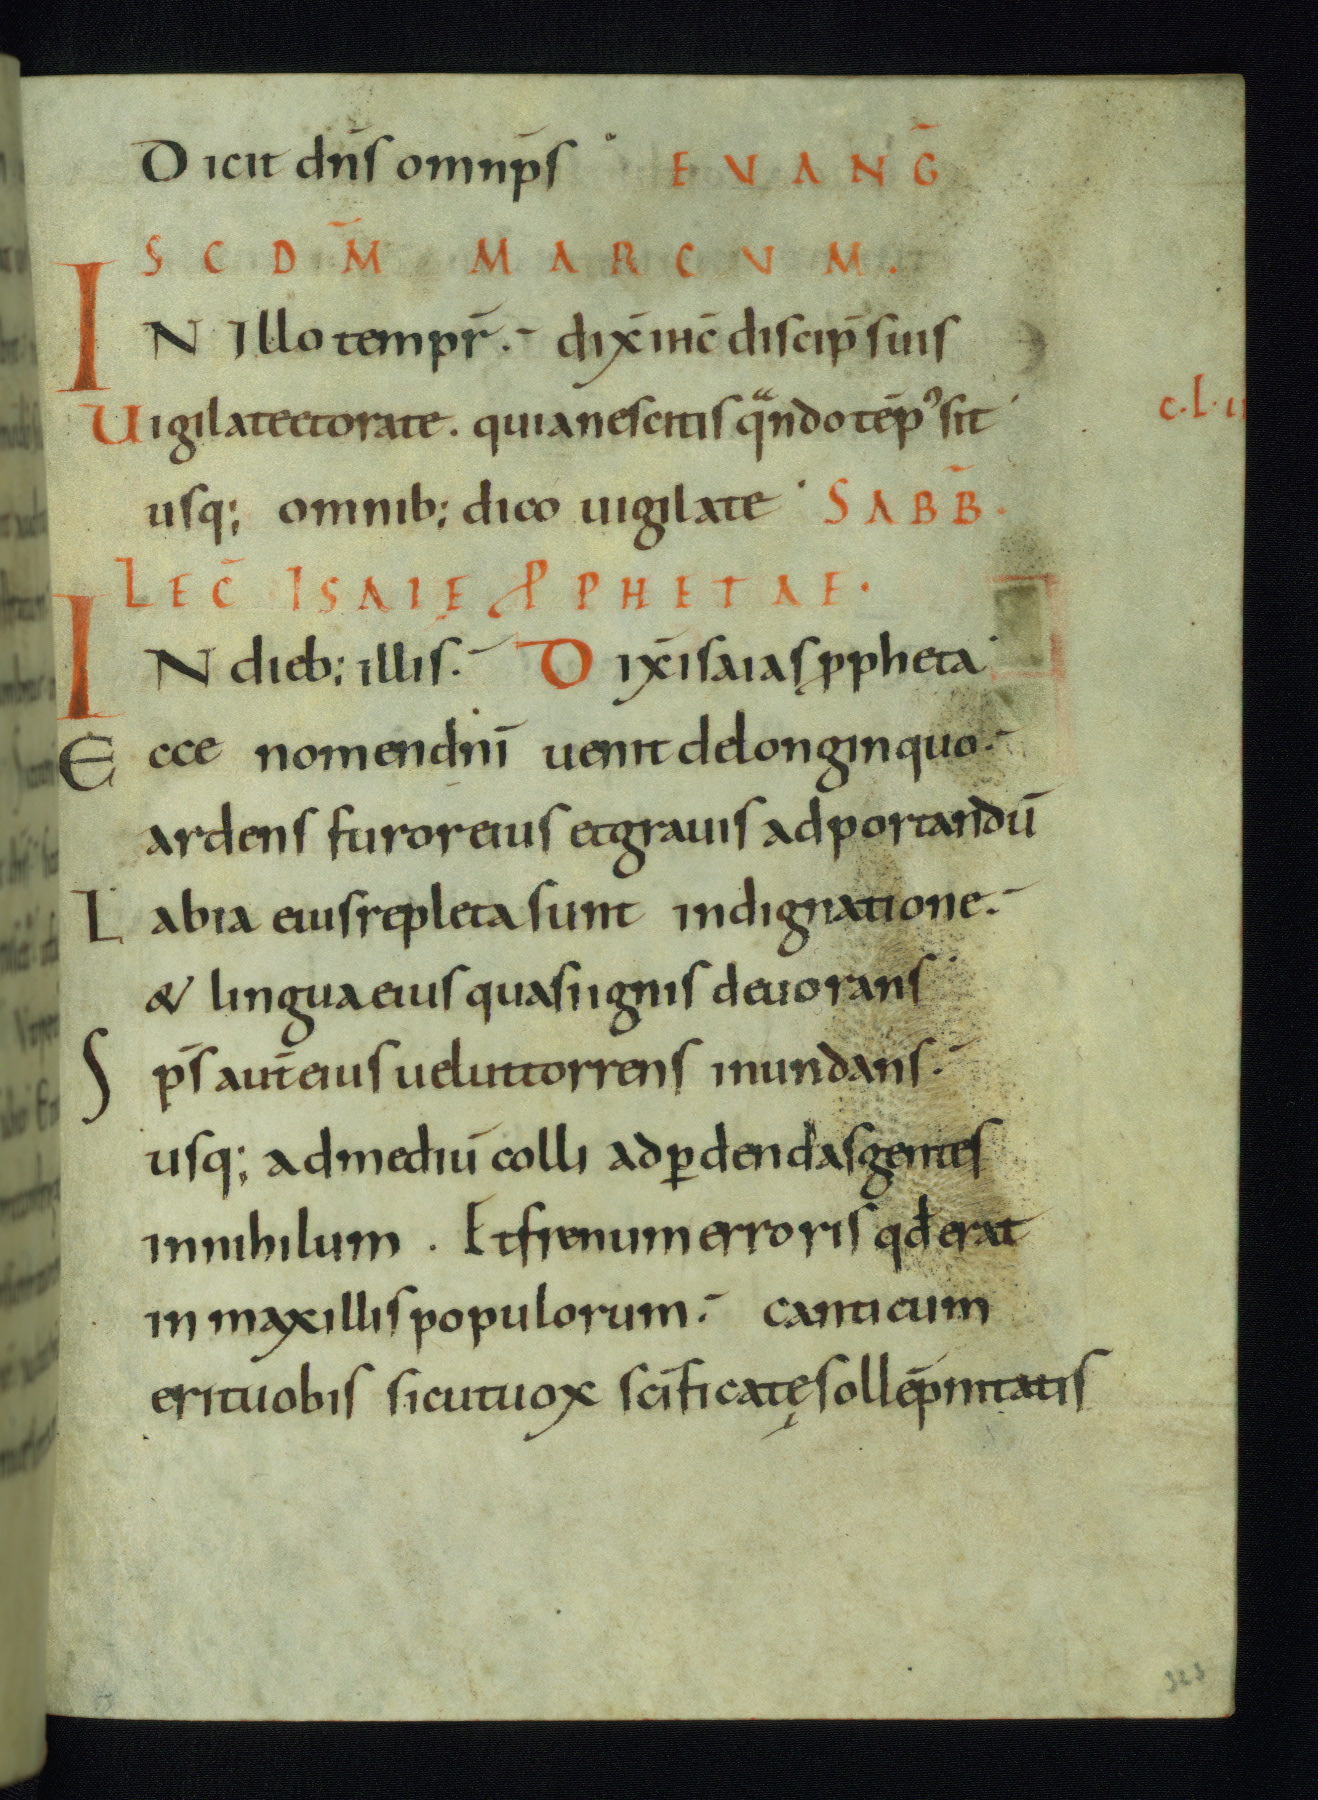 Dicit dn̄s omnip̄s · EVANḠ
SCDM̄ MARCVM.
IN Illo tempr̄. dix̄ ihc̄ discip̄ suis
Uigilateetorate. quianescitis qᵃndo tēpꝰ sit
usq; omnib; dico uigilate · SABB̄.
LEC̄ ISAIĘ ꝓPHETAE.
IN dieb; illis. Dix̄ isaias ꝓpheta
Ecce nomen dn̄i uenit delonginquo.
ardens furor eius etgrauis adportandū
Labia eius repleta sunt indignatione.
& lingua eius quasi ignis deuorans
Sp̄s aut̄ eius uelut torrens inundans.
usq; admediū colli adꝑdendas gentes
innihilum . Et frenum erroris qđ erat
in maxillis populorum. canticum
erit uobis sicut uox sc̄ificatę sollēpnitatis
c.l.
323